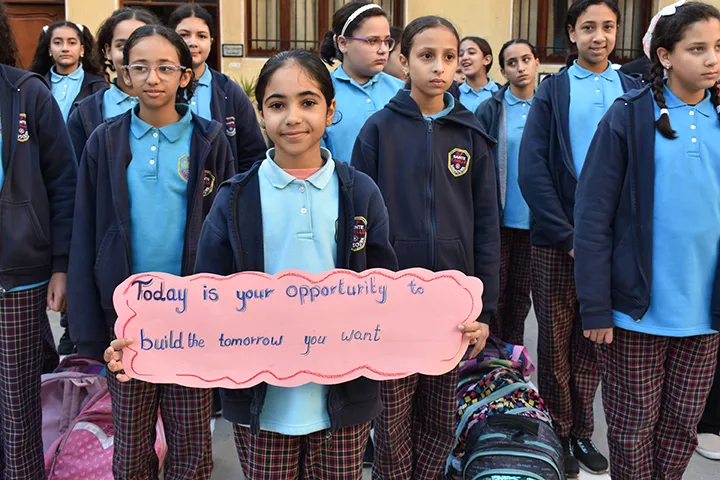 Today is your opportunity to
build the tomorrow you want